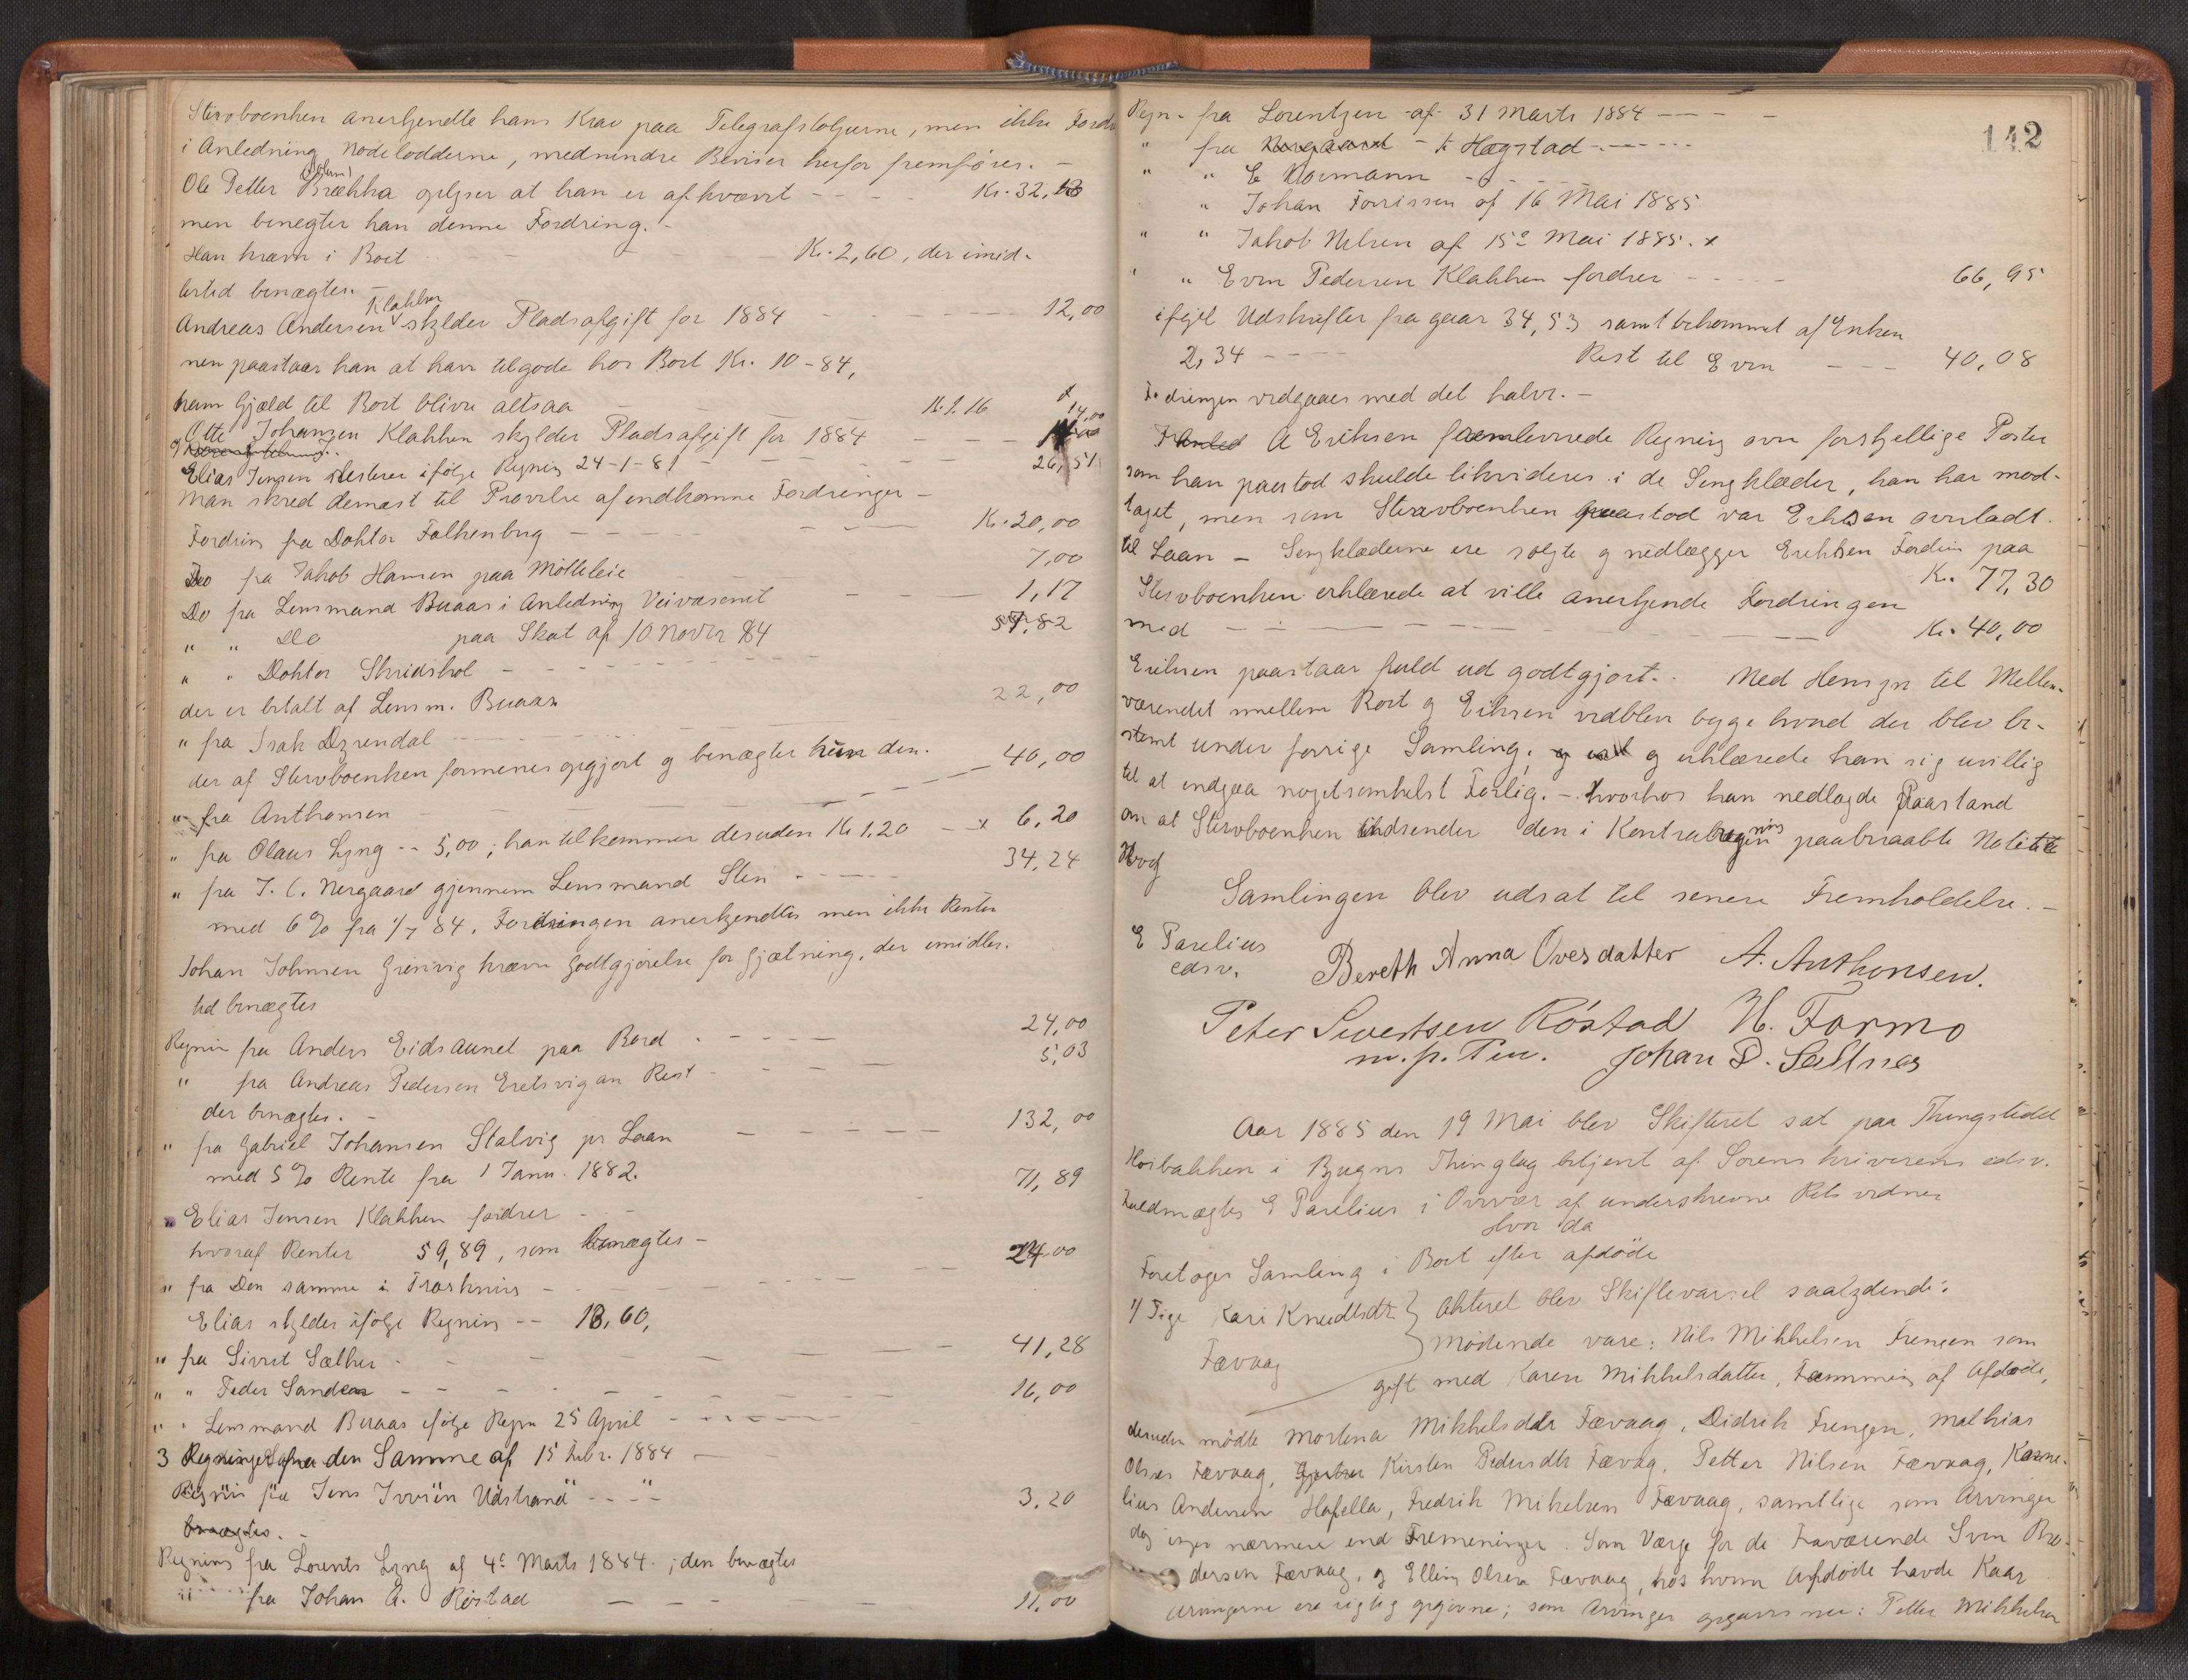 Stervboenken anerkjendte hans Krav paa Telegrafstolperne, men ikke Fordr
i Anledning Nodelodderne, medmindre Beviser herfor fremføres. -
Ole Petter Brækka oplyser at han er afkrævet - - - - Kr. 32,
men benegter han denne Fordring. -
Han kræver i Boet - - - Kr. 2,60, der imid-
lertid benægtes. -
Andreas Andersen Klakken skylder Pladsafgift for 1884 - - - - - 12,00
men paastaar han at have tilgode hos Boet Kr. 10-84,
hans Gjæld til Boet bliver altsaa - - - K. 1.16
Otte Johansen Klakken skylder Pladsafgift for 1884 - - - 14,00
Elias Jensen resterer ifølge Regning 24-1-81 - - - 26,51
Man skred dernæst til Prøvelse af indkomne Fordringer -
Fordring fra Doktor Falkenberg - - - - Kr. 20,00
Do fra Jakob Hansen paa Mølleleie 7,00
Do fra Lensmand Buaas i Anledning Veivæsenet - - - 1,17
" " Do paa Skat af 10 Novbr 84 57,82
" " Doktor Skridshol - - - - -
der er betalt af Lensm. Buaas 22,00
" fra Isak Dyrendal - - -
der af Stervboenken formenes opgjort og benægter hun den. - - - 40,00
" fra Anthonsen - - - -
" fra Olaus Lyng -- 5,00; han tilkommer desuden Kr 1,20 - x 6,20
" fra J. C. Nergaard gjennem Lensmand Sten - - - - 34,24
med 6% fra 1/7 84. Fordringen anerkjendtes men ikke Renter
Johan Johnsen Grønvig kræver Godtgjørelse for Gjætning, der imidler-
tid benægtes
Regnin fra Anders Eidsaunet paa Bord - - - - 24,00
" fra Andreas Pedersen Eretsvigan Rest - - - - 5,03
der benægtes. -
" fra Gabriel Johansen Stalvig pr Laan - - - - - 132,00
med 5% Rente fra 1 Janu. 1882.
" Elias Jensen Klakken fordrer - - - 71,89
hvoraf Renter 59,89, som benægtes -
" fra Den samme i Træskning - - - - - 24,00
Elias skylder ifølge Regning -- 18,60,
" fra Sivert Sæther - - - - - - 41,28
" " Peder Sandeas - - - - - - 16,00
" " Lensmand Buaas ifølge Regn 25 April - - - - -
3 Regninger fra den Samme af 15 Febr. 1884 -
Regnin fra Jens Iversen Udstrand - - -
benægtes. - 3.20
Regning fra Lorents Lyng af 4de Marts 1884; den benægtes
" fra Johan A. Røstad - - - - 11,00
142
Regn. fra Lorentzen af 31 Marts 1884 - - - -
" fra Norgaard - K Hægstad - - - - -
" " E Normann - - - -
" Johan Forrissen af 16 Mai 1885
" " Jakob Nilsen af 15de Mai 1885. x
" " Even Pedersen Klakken fordrer - - - - 66,95
ifgl Udskrifter fragaar 34,53 samt bekommet af Enken
2,34 - - - - Rest til Even - - - 40,08
Fordringen vedgaaes med det halve. -
A Eriksen fremleverede Regning over forskjellige Poster
som han paastod skulde likvideres i de Sengklæder, han har mod-
taget, men som Stervboenken paastod var Eriksen overladt
til Laan - Sengklæderne ere solgte og nedlægger Eriksen Fordrin paa
Kr. 77,30
Stervboenken erklærede at ville anerkjende Fordringen
med - - - - - - - Kr. 40,00
Eriksen paastaar fuld ud godtgjort. Med Hensyn til Mellem-
værendet mellem Boet og Eriksen vedblev begge hvad der blev be-
stemt under forrige Samling; og erklærede han sig uvillig
til at indgaa nogetsomhelst Forlig. - hvorhos han nedlagde Paastand
om at Stervboenken indsender den i Kontraregning paaberaabte Notitie
Hvorf
Samlingen blev udsat til senere Fremholdelse. -
E Parelius
edsv.
Bereth Anna Ovesdatter A. Anthonsen.
Peter Sivertsen Røstad H. Formo
m. p. Pen. Johan P. Sæltnes
Aar 1885 den 19 Mai blev Skifteret sat paa Thingstedet
Hoibakken i Bjugns Thinglag betjent af Sorenskriverens edsv.
Fuldmægtig E Parelius i Overvær af underskrevne Rets vidner
Hvor da
Foretoges Samling i Boet efter afdøde
1/ Pige Kari Knudtsdtr Akteret blev Skiftevarsel saalydende:
Fævaag Mødende vare: Nils Mikkelsen Frengen som
gift med Karen Mikkelsdatter, Fremmin af Afdøde,
desuden mødte Mortena Mikkelsdatter Fævaag, Didrik Frengen, Mathias
Olsen Fævaag, Kirsten Pedersdtr Fævag, Petter Nilsen Fævaag, Karne-
lius Andersen Hafella, Fredrik Mikelsen Fævaag, samtlige som Arvinger
dog ingen nærmere end Fremeninger. Som Værge for de Fraværende Sven Pe-
dersen Fævaag, og Elling Olsen Fævaag, hos hvem Afdøde havde Kaar
Arvingerne ere rigtig opgivne; som Arvinger opgaves nu: Petter Mikkelsen